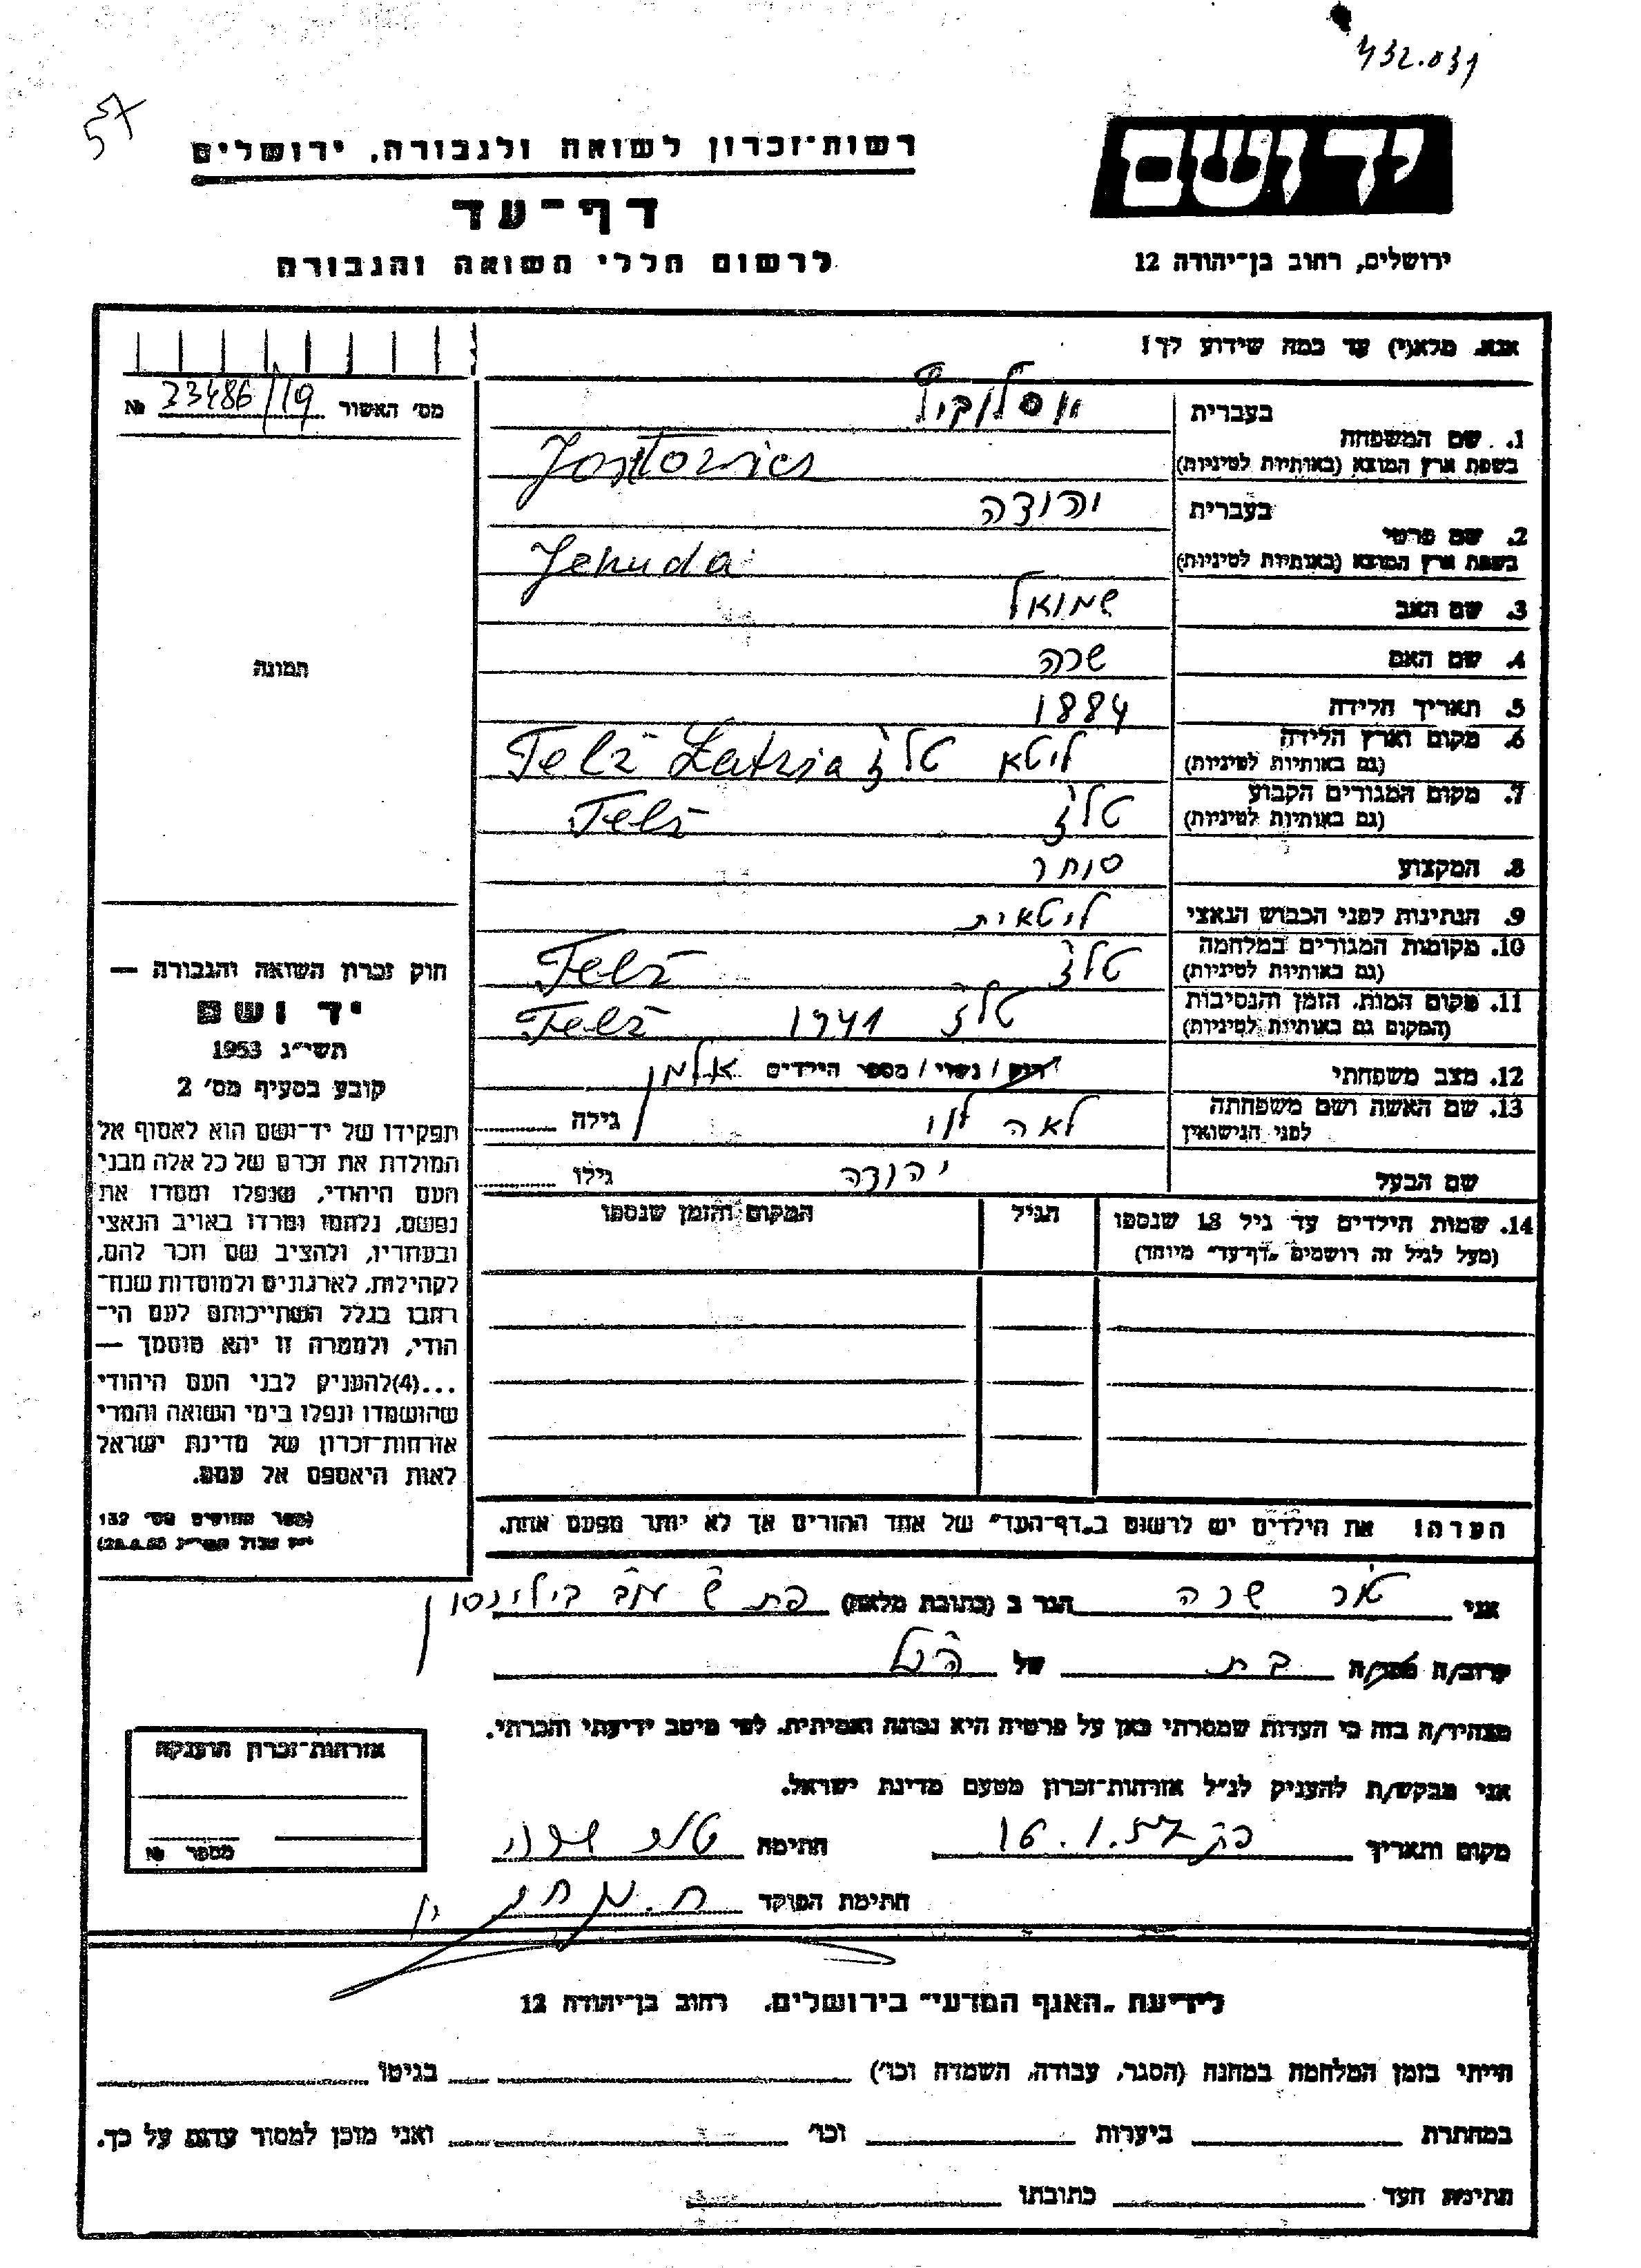 432.031
57
ידושם
רשות־זכרון לשואה ולגבורה, ירושלים
דף־עד
לרשום חללי השואה והגבורה
ירושלים, רחוב בן־יהודה 12
אנא, מלא(י) עד כמה שידוע לך!
מס׳ האשור № 23486/19
תמונה
1. שם המשפחה בעברית
בשפת ארץ המוצא (באותיות לטיניות)
2. שם פרטי בעברית יהודה
בשפת ארץ המוצא (באותיות לטיניות) Jehuda
3. שם האב שמואל
4. שם האם שרה
5. תאריך הלידה 1884
6. מקום וארץ הלידה ליטא טלז Telž
(גם באותיות לטיניות)
7. מקום המגורים הקבוע טלז Telž
(גם באותיות לטיניות)
8. המקצוע סוחר
9. הנתינות לפני הכבוש הנאצי ליטאית
10. מקומות המגורים במלחמה טלז Telž
(גם באותיות לטיניות)
11. מקום המות, הזמן והנסיבות טלז 1941 Telž
(המקום גם באותיות לטיניות)
12. מצב משפחתי רווק / נשוי / מספר הילדים אלמן
13. שם האשה ושם משפחתה לאה גילה
לפני הנישואין
שם הבעל יהודה גילו
14. שמות הילדים עד גיל 18 שנספו הגיל המקום והזמן שנספו
(מעל לגיל זה רושמים „דף־עד״ מיוחד)
חוק זכרון השואה והגבורה —
יד ושם
תשי״ג 1953
קובע בסעיף מס׳ 2
תפקידו של יד־ושם הוא לאסוף אל
המולדת את זכרם של כל אלה מבני
העם היהודי, שנפלו ומסרו את
נפשם, נלחמו ומרדו באויב הנאצי
ובעוזריו, ולהציב שם וזכר להם,
לקהילות, לארגונים ולמוסדות שנח־
רחבו בגלל השתייכותם לעם הי־
הודי, ולמטרה זו יהא מוסמך —
...(4)להעניק לבני העם היהודי
שהושמדו ונפלו בימי השואה והמרי
אזרחות־זכרון של מדינת ישראל
לאות היאספם אל עמם.
(ספר החוקים מס׳ 132
הערה! את הילדים יש לרשום ב„דף־העד״ של אחד ההורים אך לא יותר מפעם אחת.
אני שרה הגר ב (כתובת מלאה) בילינסון
קרוב/ה מכר/ה בת של הנ״ל
מצהיר/ה בזה כי העדות שמסרתי כאן על פרטיה היא נכונה ואמיתית, לפי מיטב ידיעתי והכרתי.
אני מבקש/ת להעניק לנ״ל אזרחות־זכרון מטעם מדינת ישראל.
מקום ותאריך 16.1.57 חתימה
חתימת הפוקד
אזרחות־זכרון הוענקה
מספר №
לידיעת „האגף המדעי״ בירושלים, רחוב בן־יהודה 12
הייתי בזמן המלחמה במחנה (הסגר, עבודה, השמדה וכו׳) בגיטו
במחתרת ביערות וכו׳ ואני מוכן למסור עדות על כך.
חתימת העד כתובתו